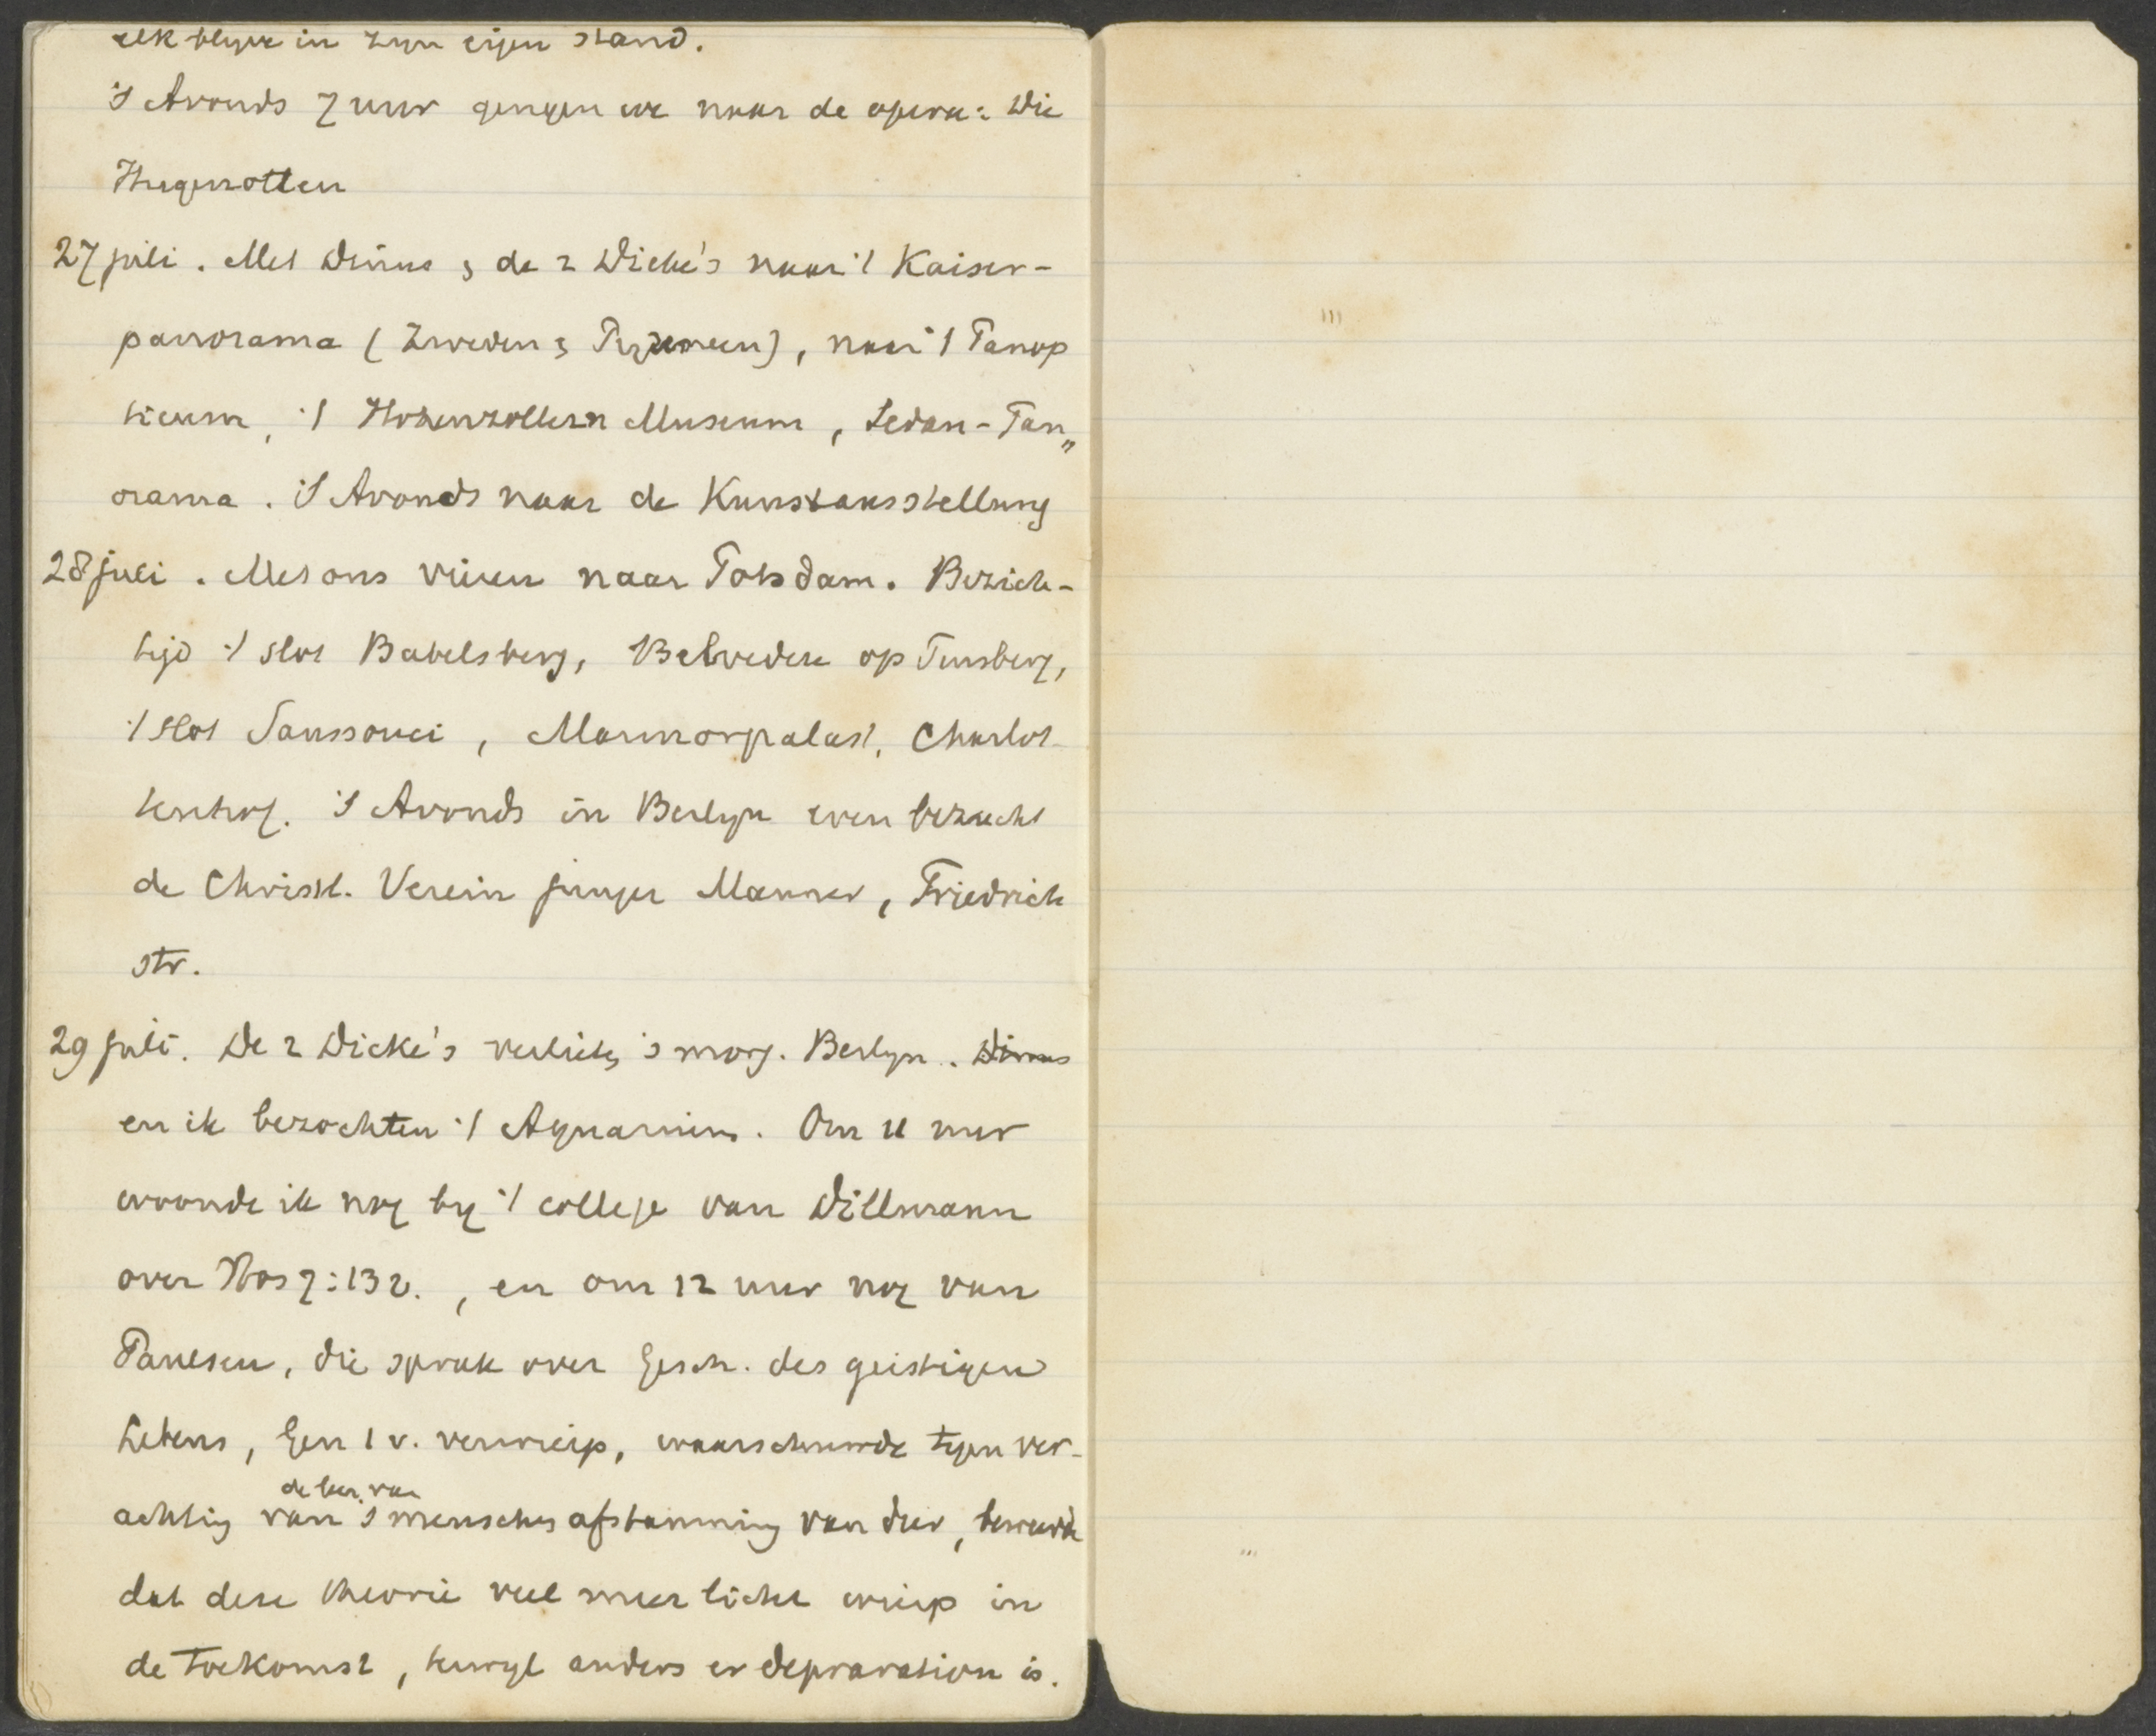 elk blijve in zijn eigen stand.
's Avonds 7 uur gingen we naar de opera: Die
Hugenotten
27 juli. Met Dinus & de 2 Dicke's naar 't Kaiser-
panorama (Zweden & Pyreneen), naar 't Panop
ticum, 't Hohenzollern Museum, Sedan-Pan„
orama. 's Avonds naar de Kunstausstellung
28 juli. Met ons vieren naar Potsdam. Bezich-
tigd 't slot Babelsberg, Belvedere op Pinsberg,
't slot Sanssouci, Marmorpalast, Charlot
tenhof. 's Avonds in Berlyn even bezocht
de Christl. Verein junger Manner, Friedrich
str.
29 juli. De 2 Dicke's verliet, 's morg. Berlyn. Dinus
en ik bezochten 't Aquarium. Om 11 uur
woonde ik nog by 't college van Dillmann
over Hos 7:13 v., en om 12 uur nog van
Paulsen, die sprak over Gesch. des geistigen
Lebens, Gen 1 v. verwierp, waarschuwde tegen ver-
de leer van
achting van 's menschen afstamming van dier, beweerde
dat deze theorie veel meer licht wierp in
de toekomst, terwyl anders er depravation is.